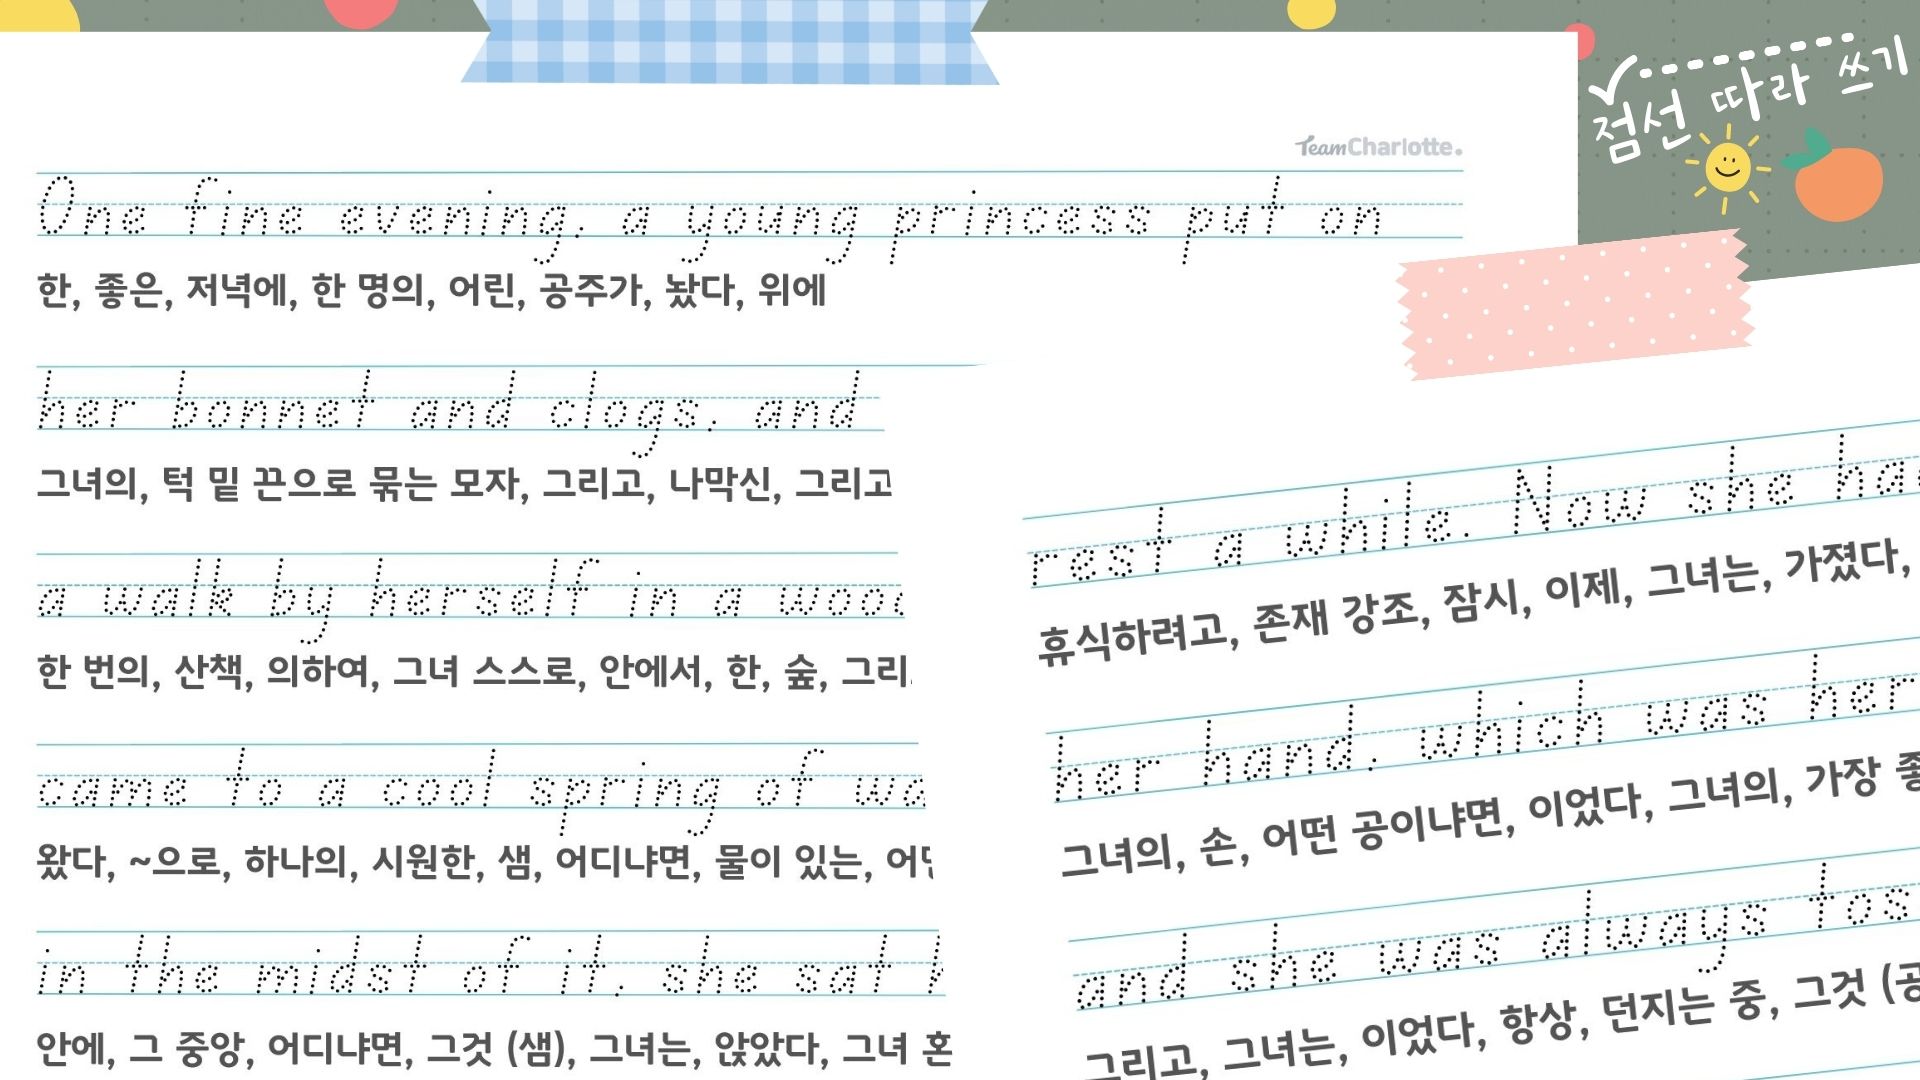 점선 따라 쓰기
TeamCharlotte.
One fine evening, a young princess put on
한, 좋은, 저녁에, 한 명의, 어린, 공주가, 놨다, 위에
her bonnet and clogs, and
그녀의, 턱 밑 끈으로 묶는 모자, 그리고, 나막신, 그리고
a walk by herself in a
한 번의, 산책, 의하여, 그녀 스스로, 안에서, 한, 숲, 그리
came to a cool spring of
왔다, ~으로, 하나의, 시원한, 샘, 어디냐면, 물이 있는,
in the midst of it, she sat
안에, 그 중앙, 어디냐면, 그것 (샘), 그녀는, 앉았다, 그녀 혼
rest a while. Now she
휴식하려고, 존재 강조, 잠시, 이제, 그녀는, 가졌다,
her hand, which was her
그녀의, 손, 어떤 공이냐면, 이었다, 그녀의, 가장
and she was always tos
그리고, 그녀는, 이었다, 항상, 던지는 중, 그것 (공